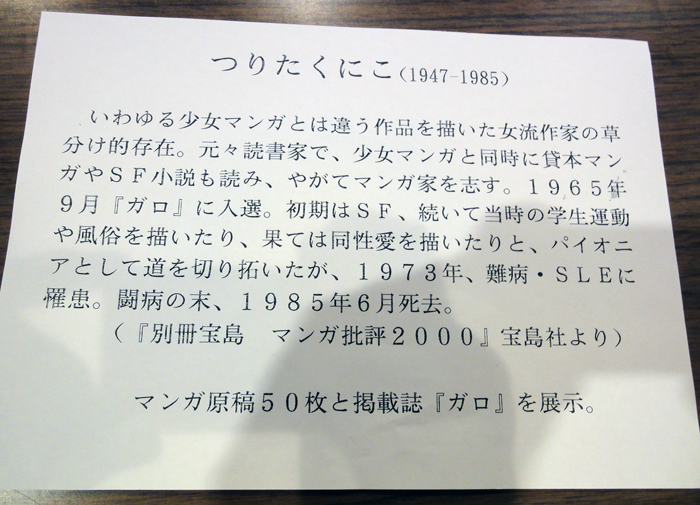 つりたくにこ(1947-1985)
いわゆる少女マンガとは違う作品を描いた女流作家の草
分け的存在。元々読書家で、少女マンガと同時に貸本マン
ガやSF小説も読み、やがてマンガ家を志す。1965年
9月『ガロ』に入選。初期はSF、続いて当時の学生運動
や風俗を描いたり、果ては同性愛を描いたりと、パイオニ
アとして道を切り拓いたが、1973年、難病・SLEに
罹患。闘病の末、1985年6月死去。
(『別冊宝島　マンガ批評2000』宝島社より)
マンガ原稿50枚と掲載誌『ガロ』を展示。